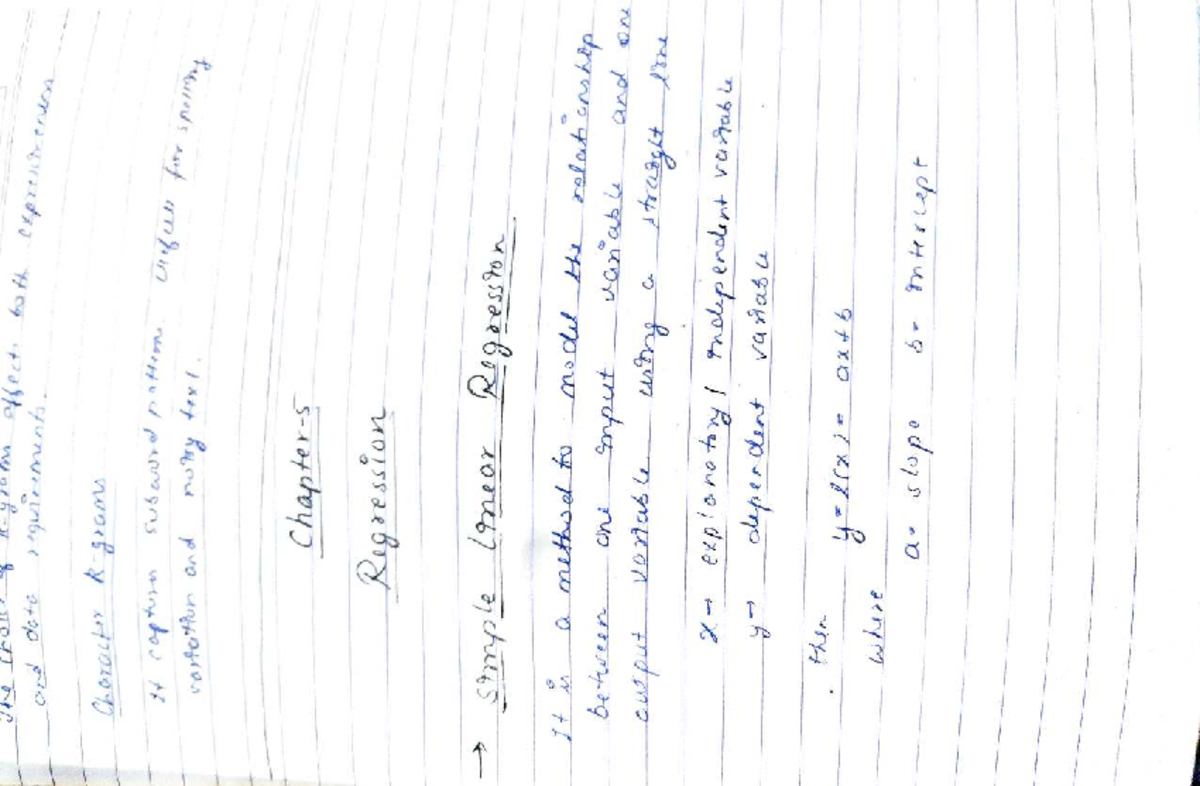 The choice of K-grams affects both expressiveness
and data requirements.
Character K-grams
It capture subword patterns. Useful for spelling
variation and noisy text.
Chapter-5
Regression
→ Simple Linear Regression
It is a method to model the relationship
between one input variable and one
output variable using a straight line
x → explanatory / independent variable
y → dependent variable
then
y = f(x) = ax+b
where
a = slope b = intercept